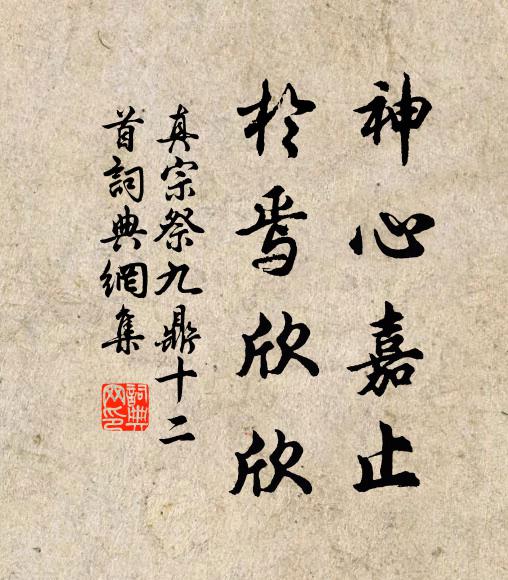 神心嘉止
於焉欣欣
真宗祭九鼎十二
首詞典網集
詞典網印